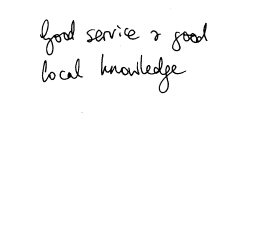 Good service & good
local knowledge